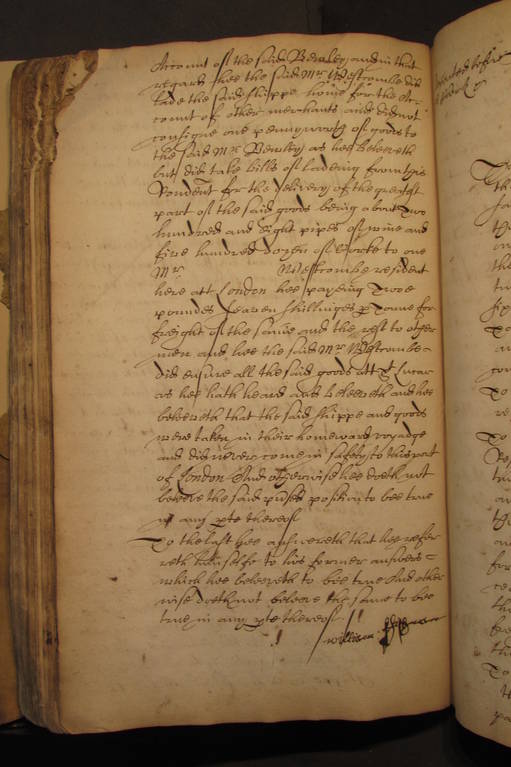 Account of the said Bewley, and in that
regard hee the said Mr Westcombe did
lade the said shippe home for the Ac-
count of other merchants and did not
consigne one pennyworth of goods to
the said Mr Bewley as hee beleeveth
but did take bills of ladeing from this
Rondent for the delivery of the greatest
part of the said goods being about Two
hundred and Eight pipes of wine and
five hundred dozen of Corke to one
Mr Westcombe resident
here att London hee payeing Three
pounds seaven shillinges p Tonne for
freight of the same and the rest to other
men and hee the said Mr Westcombe
did ensure all the said goods att St Lucar
as hee hath heard and beleeveth and hee
beleeveth that the said shippe and goods
were taken in their homeward voyadge
and did never come in safety to this port
of London And otherwise hee doeth not
beleeve the said position to bee true
in any pte thereof
To the last hee answereth that hee refer
reth himselfe to his former answers
which hee beleeveth to bee true And other
wise doeth not beleeve the same to bee
true in any pte thereof
William